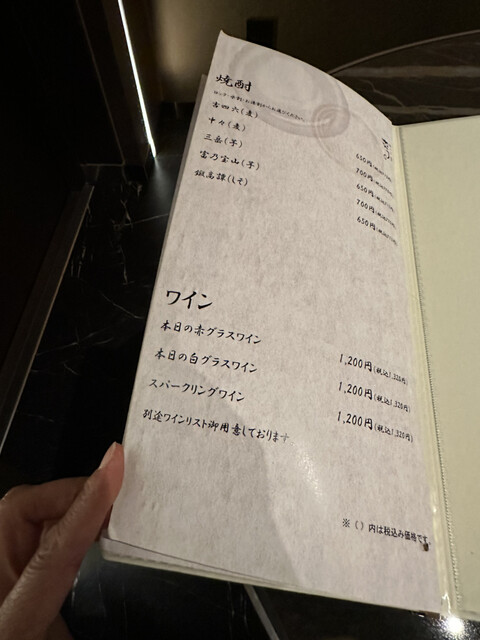 焼酎
ロック・水割・お湯割からお選びください。
吉四六(麦) 650円
中々(麦) 700円
三岳(芋) 650円
富乃宝山(芋) 700円
鍛高譚(しそ) 650円
ワイン
本日の赤グラスワイン 1,200円(税込1,320円)
本日の白グラスワイン 1,200円(税込1,320円)
スパークリングワイン 1,200円(税込1,320円)
別途ワインリスト御用意しております
※()内は税込み価格です。